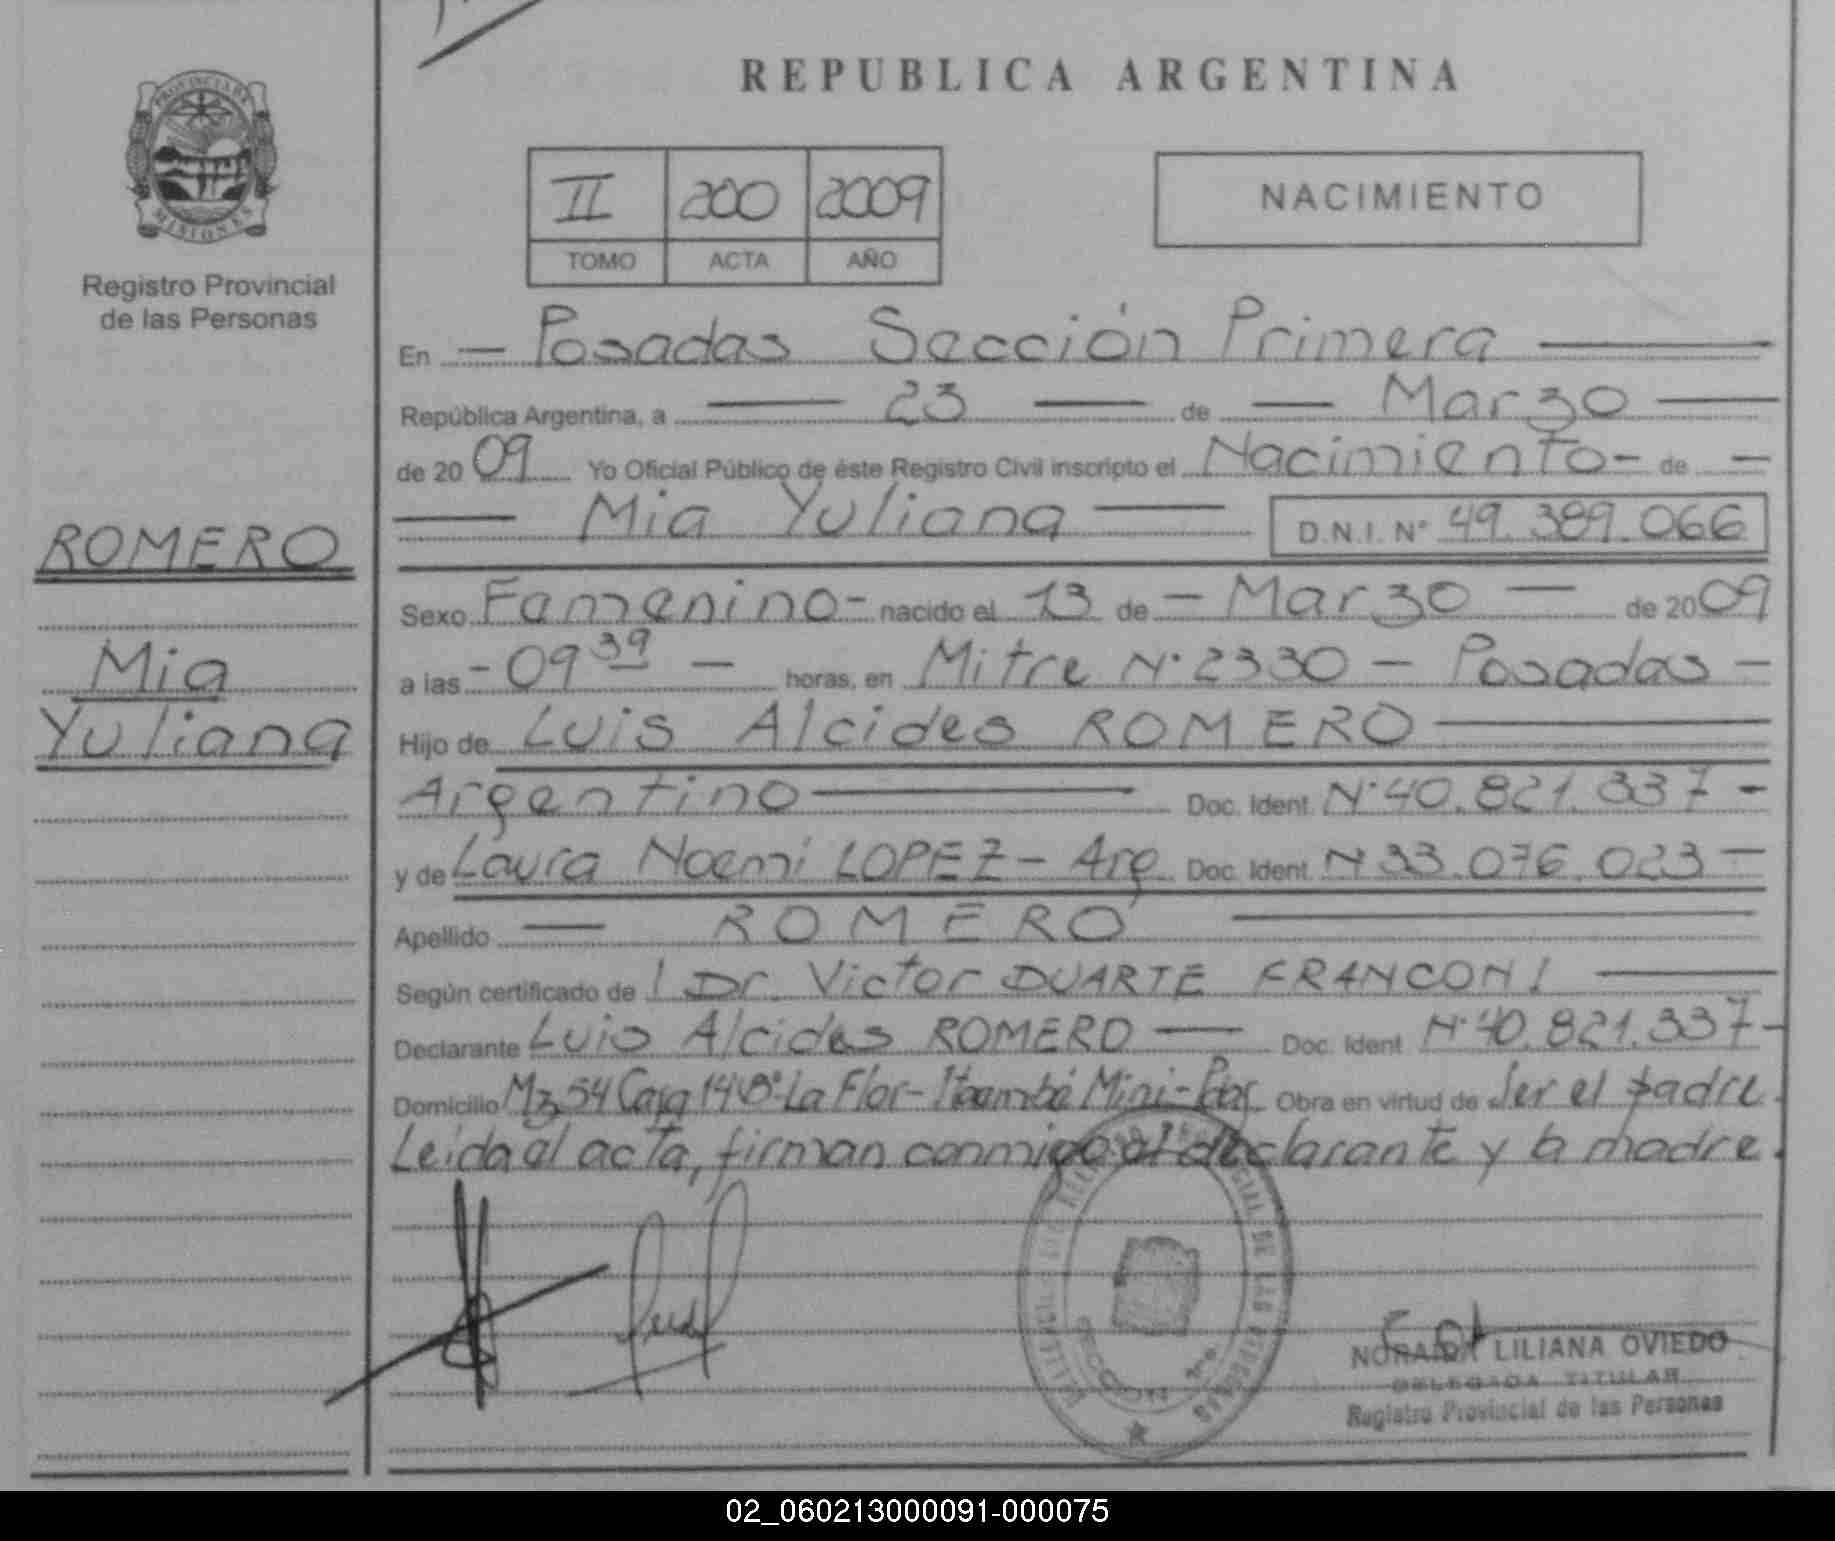 REPUBLICA ARGENTINA
PROVINCIA DE
MISIONES
Registro Provincial
de las Personas
II 200 2009
TOMO ACTA AÑO
NACIMIENTO
En — Posadas Sección Primera —
República Argentina, a — 23 — de — Marzo —
de 20 09 Yo Oficial Público de éste Registro Civil inscripto el Nacimiento - de —
— Mia Yuliana — D.N.I. Nº 49.389.066
ROMERO
Mia
Yuliana
Sexo Femenino - nacido el 13 de - Marzo — de 20 09
a las - 09 39 — horas, en Mitre Nº 2330 — Posadas —
Hijo de Luis Alcides ROMERO —
Argentino — Doc. Ident. Nº 40.821.337 -
y de Laura Noemi LOPEZ - Arg. Doc. Ident. Nº 33.076.023 —
Apellido — ROMERO —
Según certificado de Dr. Victor DUARTE FRANCONI —
Declarante Luis Alcides ROMERO — Doc. Ident Nº 40.821.337 -
Domicilio Mz 54 Casa 14 Bº La Flor - Itaembé Mini - Obra en virtud de Ser el padre.
Leida el acta, firman conmigo el declarante y la madre.
NORAIDA LILIANA OVIEDO
DELEGADA TITULAR
Registro Provincial de las Personas
02_060213000091-000075